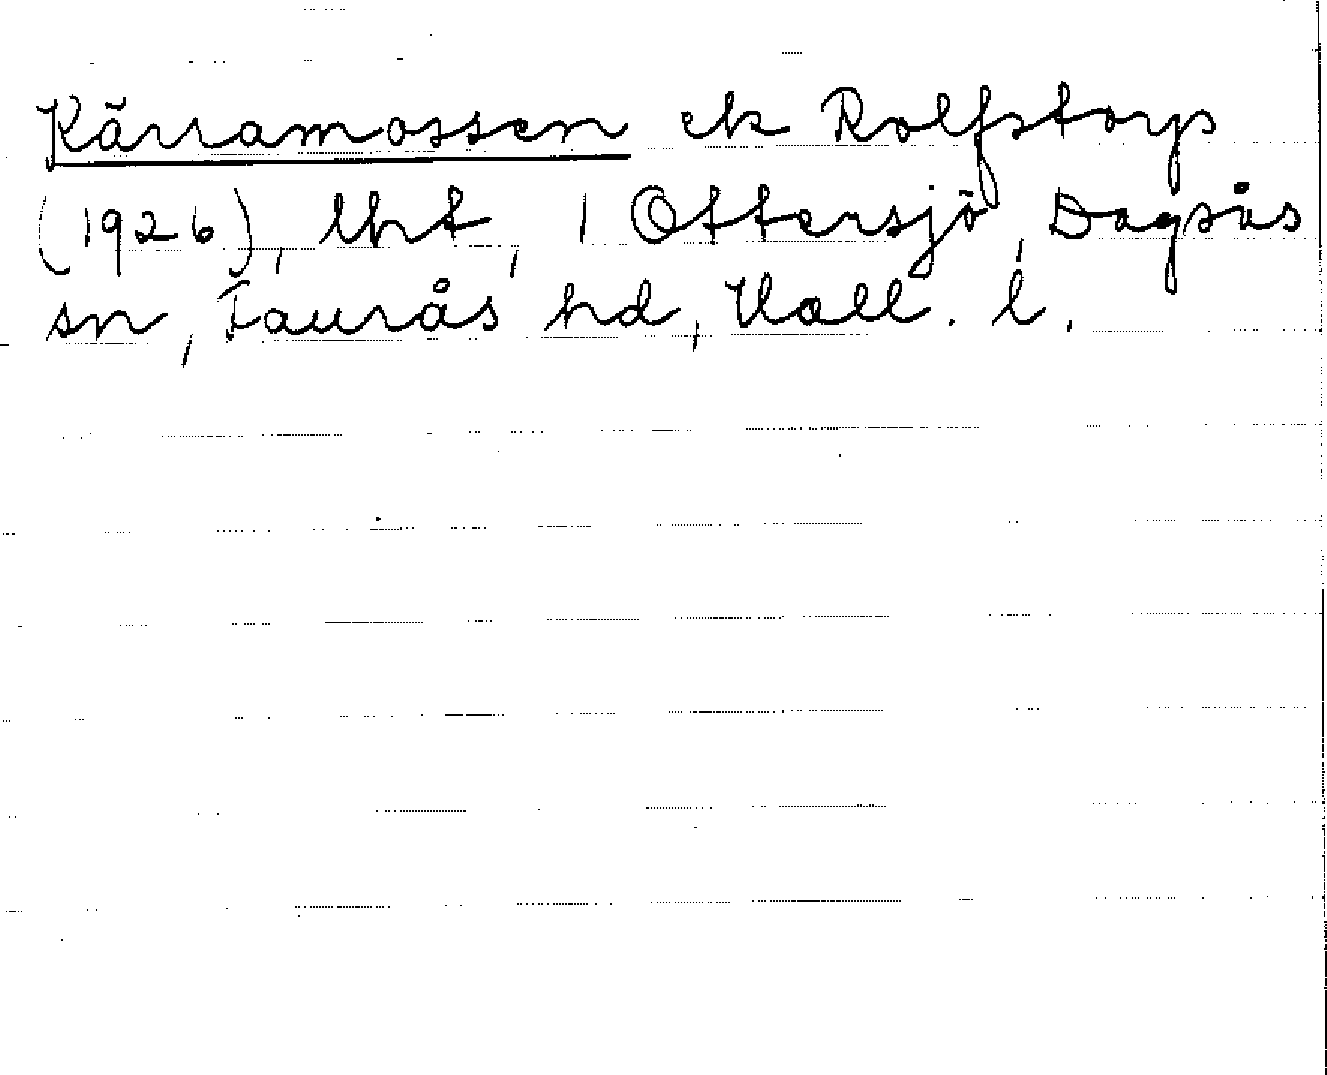 Kärramossen ek Rolfstorps
(1926), lht, 1 Ottersjö, Dagsås
sn, Faurås hd, Hall. l.